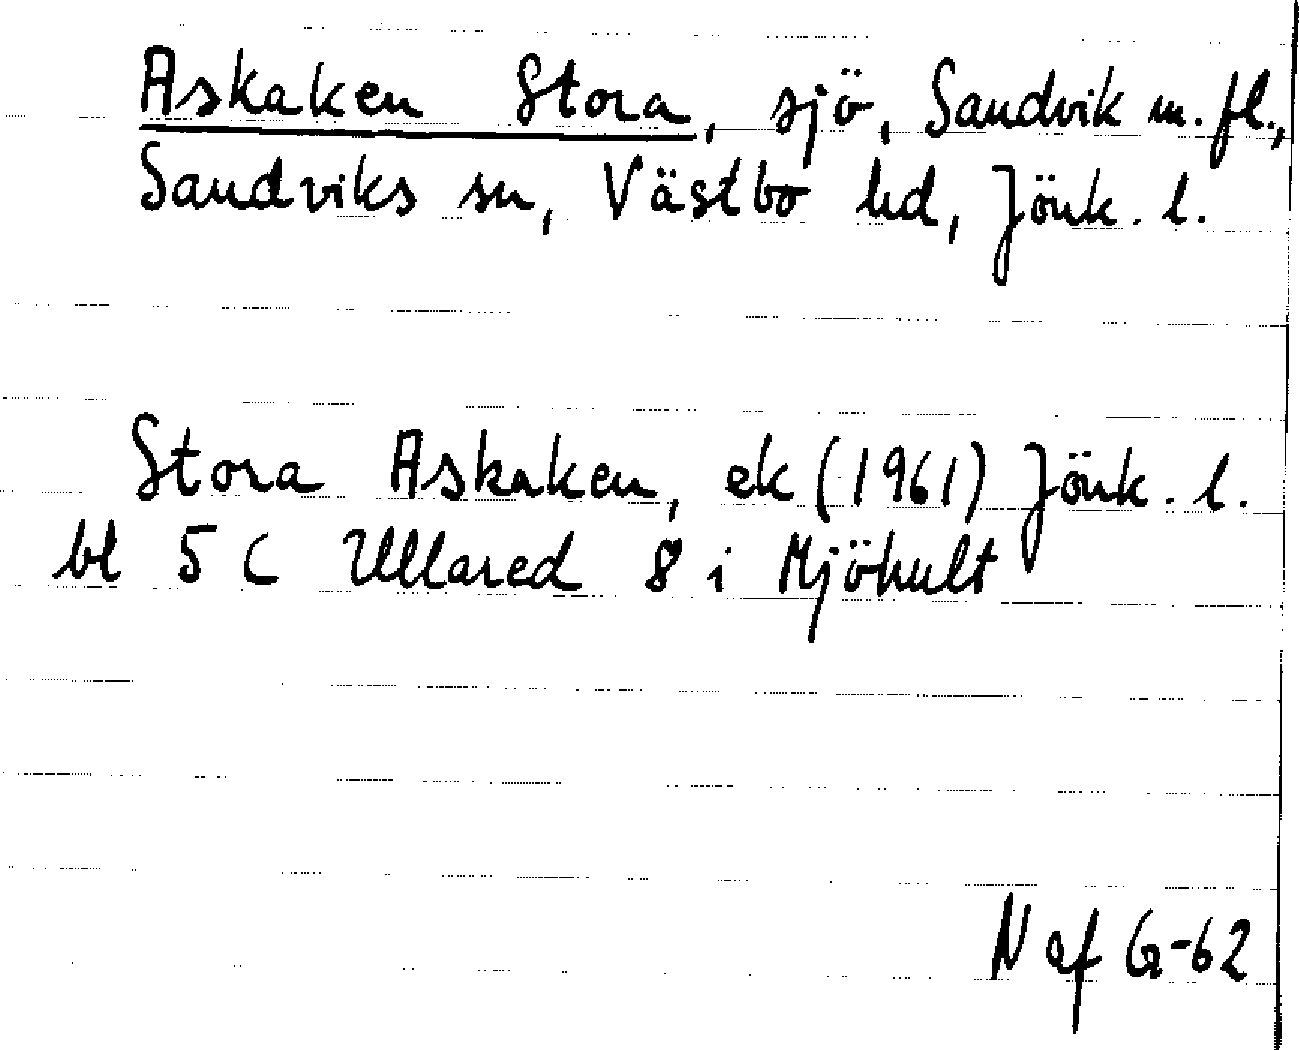 Askaken Stora, sjö, Sandvik m. fl.,
Sandviks sn, Västbo hd, Jönk. l.
Stora Askaken, ek (1961) Jönk. l.
bl 5 C Ullared 8 i Mjöhult
N af G-62